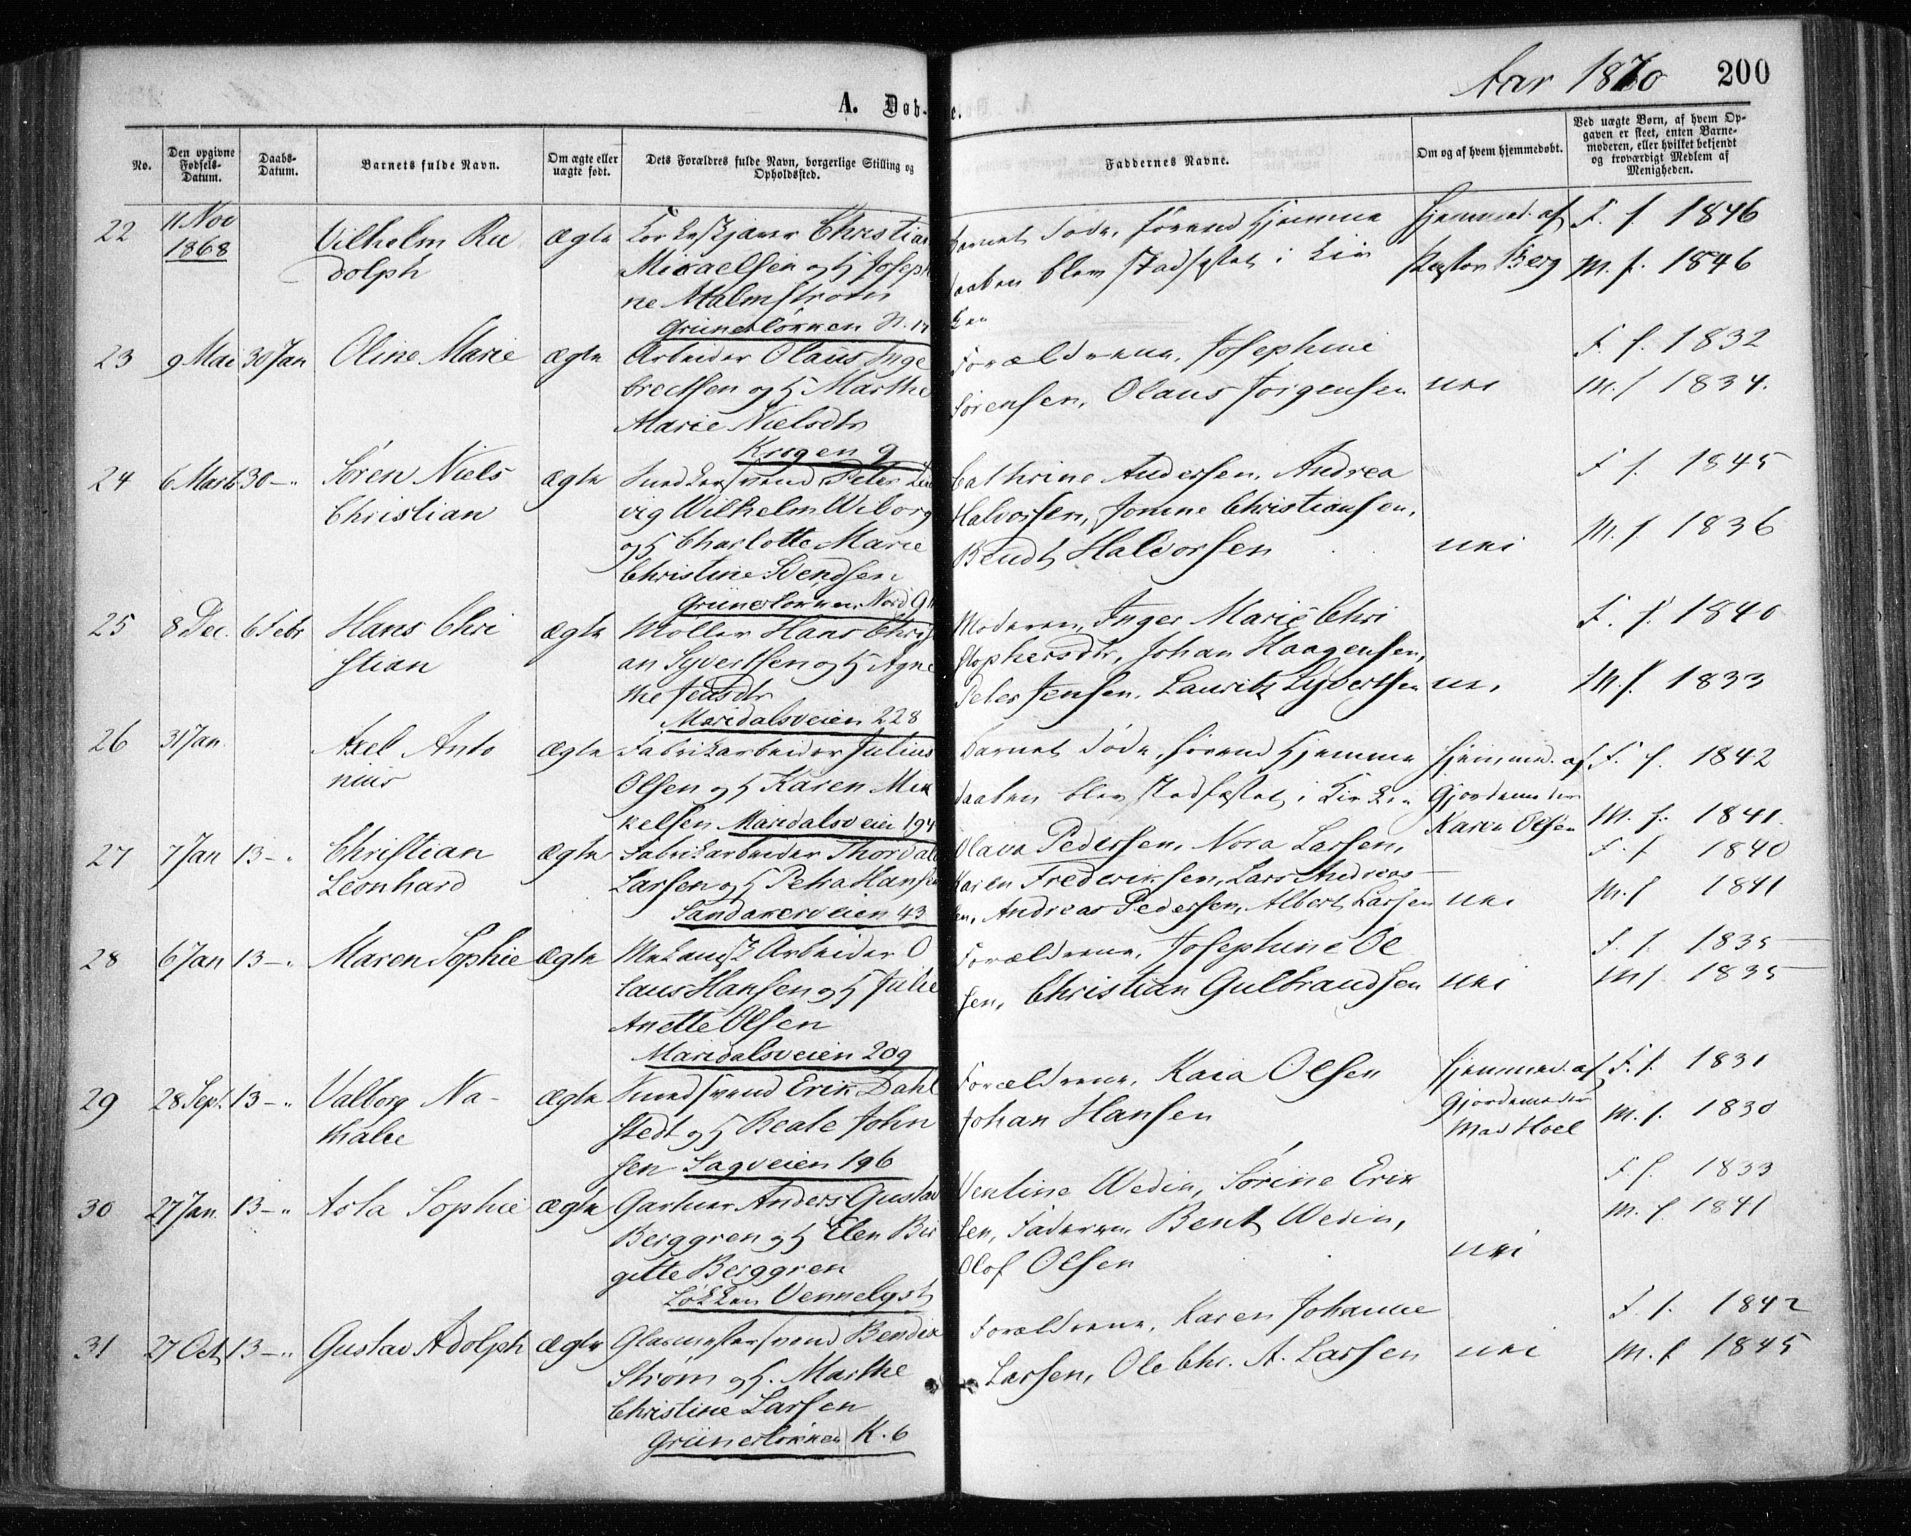 Aar 1870 200
A. Døb- e.
No.
Den opgivne Fødsels-Datum.
Daabs-Datum.
Barnets fulde Navn.
Om ægte eller uægte født.
Dets Forældres fulde Navn, borgerlige Stilling og Opholdssted.
Faddernes Navne.
Om og af hvem hjemmedøbt.
Ved uægte Børn, af hvem Opgaven er skeet, enten Barnemoderen, eller hvilket bekjendt og troværdigt Medlem af Menigheden.
22 11 Nov 1868 Vilhelm Ru
dolph
ægte
Christian
Mikaelsen og H Joseph
ne Malmstrøm
Grünerløkken N. 17
Barnet døde, førend Hjemme
daaben blev stadfæstet i Kir
ken
Hjemmed. af
Pastor Berg
F. f. 1846
M. f. 1846
23 9 Mai 30 Jan Oline Marie ægte
Arbeider Olaus Inge
brectsen og H Marthe
Marie Nielsdtr
Krogen 9
Forældrene, Josephine
Sørensen, Olaus Jørgensen
nei
F. f. 1832
M. f. 1834.
24 6 Marts 30 -" Søren Niels
Christian
ægte
Snedkersvend Peter Lud
vig Wilhelm Wiborg
og H Charlotte Marie
Christine Svendsen
Grünerløkken Nord 9
Cathrine Andersen, Andrea
Halvorsen, Jonine Christiansen,
Bendt Halvorsen
nei
F. f. 1845
M. f. 1836
25 8 Dec. 6 Febr Hans Chri
stian
ægte
Møller Hans Christ
an Syvertsen og H Agne
the Jensdtr
Maridalsveien 228
Moderen, Inger Marie Chri
stophersdtr, Johan Haagensen,
Peter Jensen, Lauritz Syvertsen
nei
F. f. 1840
M. f. 1833
26 31 Jan. Axel Anto
nius
ægte
Fabrikarbeider Julius
Olsen og H Karen Mik
kelsen Maridalsveien 194
Barnet døde, førend Hjemme
daaben blev stadfæstet i Kirken
Hjemmed. af
Gjordemoder
Karen Olsen
F. f. 1842
M. f. 1841.
27 7 Jan 13 -" Christian
Leonhard
ægte
Fabrikarbeider Thorvald
Larsen og H Petra Hansen
Sandakerveien 43
Olava Pedersen, Nora Larsen,
Karen Frederiksen, Lars Andreas-
en, Andreas Pedersen, Albert Larsen
nei
F. f. 1840
M. f 1841
28 6 Jan 13 -" Maren Sophie ægte
Mekanisk Arbeider O
laus Hansen og H Julie
Anette Olsen
Maridalsveien 209
Forældrene, Josephine Ol
sen, Christian Gulbrandsen
nei
F. f. 1835
M f. 1835
29 28 Sept. 13 -" Valborg Na-
thalie
ægte
Smedsvend Erik Dahl
stedt og H Beate John
sen Sagveien 196
Forældrene, Kaia Olsen
Johan Hansen
Hjemmed. af
Gjordemoder
Mad Hoel
F. f. 1831
M. f. 1830
30 27 Jan. 13 -" Asla Sophie ægte
Gartner Anders Gustav
Berggren og H Elen Bir
gitte Berggren
Løkken Vennelyst
Ventine Wedin, Sørine Erik
sen, Faderen Bent Wedin,
Olof Olsen
nei
F f. 1833
M. f. 1841
31 27 Oct 13 -" Gustav Adolph ægte
Glasmestersvend Bendix
Strøm og H. Marthe
Christine Larsen
Grünerløkken K. 6
Forældrene, Karen Johanne
Larsen, Ole Chr. A. Larsen
nei
F. f. 1842
M. f 1845